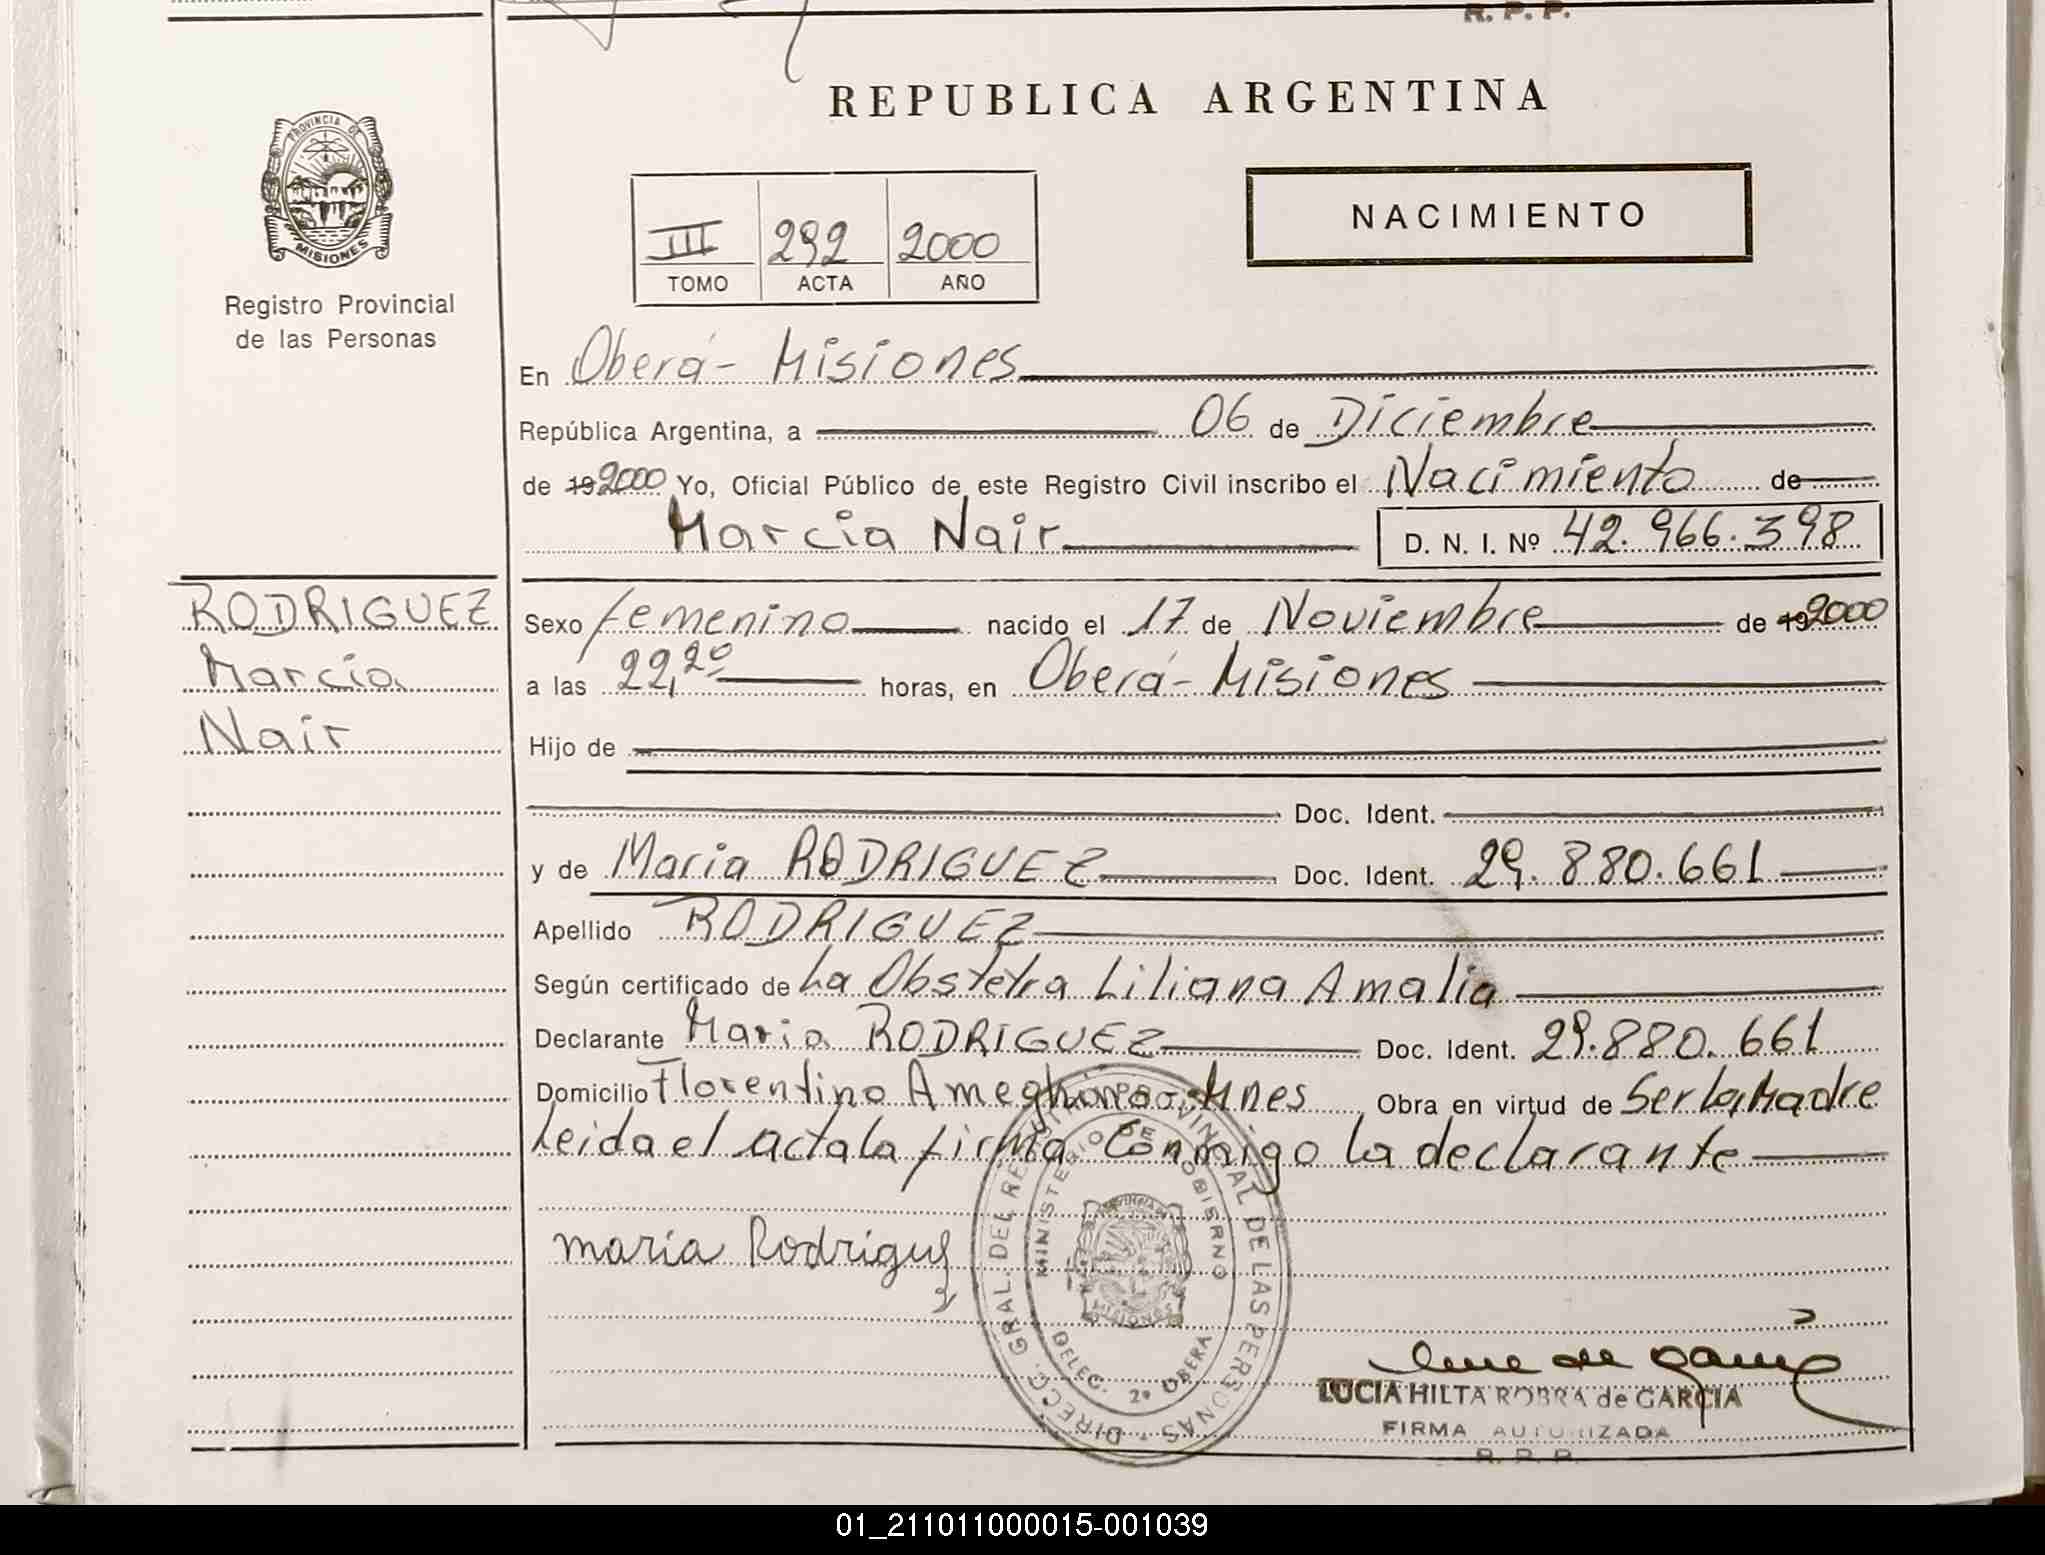 R. P. P.
REPUBLICA ARGENTINA
PROVINCIA DE
MISIONES
Registro Provincial
de las Personas
III 292 2000
TOMO ACTA AÑO
NACIMIENTO
En Oberá - Misiones
República Argentina, a 06 de Diciembre
de 19 2000 Yo, Oficial Público de este Registro Civil inscribo el Nacimiento de
Marcia Nair D. N. I. Nº 42.966.398
RODRIGUEZ
Marcia
Nair
Sexo femenino nacido el 17 de Noviembre de 19 2000
a las 22,20 horas, en Oberá - Misiones
Hijo de
Doc. Ident.
y de Maria RODRIGUEZ Doc. Ident. 29.880.661
Apellido RODRIGUEZ
Según certificado de La Obstetra Liliana Amalia
Declarante Maria RODRIGUEZ Doc. Ident. 29.880.661
Domicilio Florentino Ameghino - Mnes Obra en virtud de Ser La Madre
Leida el acta la firma Conmigo la declarante
maria Rodriguez
DIRECC. GRAL. DEL REGISTRO PROVINCIAL DE LAS PERSONAS
MINISTERIO DE GOBIERNO
MISIONES
DELEG. 2º OBERA
LUCIA HILTA ROBRA de GARCIA
FIRMA AUTORIZADA
R. P. P.
01_211011000015-001039